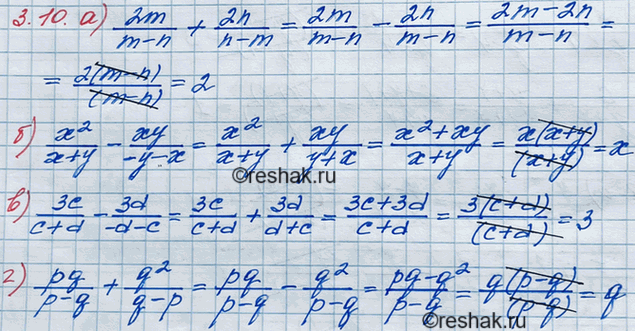 3.10. а) 2m/(m-n) + 2n/(n-m) = 2m/(m-n) - 2n/(m-n) = (2m-2n)/(m-n) =
= 2(m-n)/(m-n) = 2
б) x²/(x+y) - xy/(-y-x) = x²/(x+y) + xy/(y+x) = (x²+xy)/(x+y) = x(x+y)/(x+y) = x
©reshak.ru
в) 3c/(c+d) - 3d/(-d-c) = 3c/(c+d) + 3d/(d+c) = (3c+3d)/(c+d) = 3(c+d)/(c+d) = 3
г) pq/(p-q) + q²/(q-p) = pq/(p-q) - q²/(p-q) = (pq-q²)/(p-q) = q(p-q)/(p-q) = q
©reshak.ru